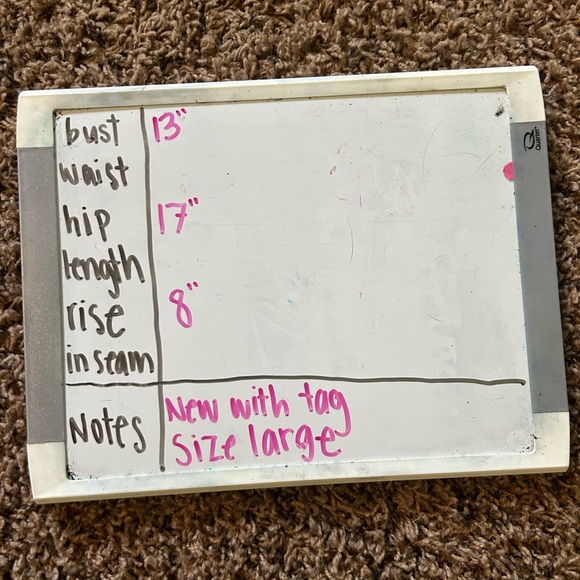 bust 13"
waist
hip 17"
length
rise 8"
inseam
Notes New with tag
Size large
Quartet